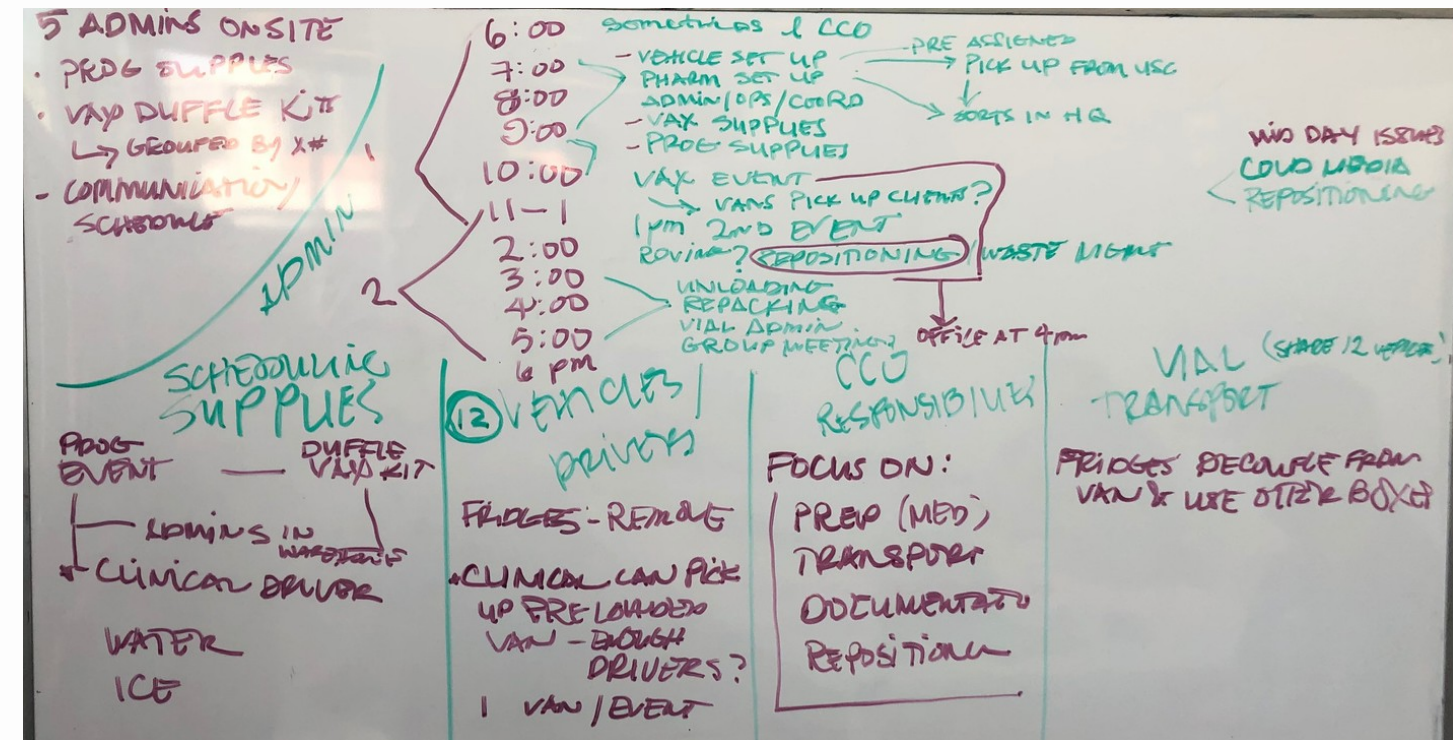 5 ADMINS ONSITE
· PROG SUPPLIES
· VAX DUFFLE KIT
↳ GROUPED BY X#
- COMMUNICATION/
SCHEDULE
ADMIN
1
2
6:00
7:00
8:00
9:00
10:00
11-1
2:00
3:00
4:00
5:00
6 pm
SOMETIMES 1 CCO
- VEHICLE SET UP
PHARM SET UP
ADMIN/OPS/COORD
- VAX SUPPLIES
- PROG SUPPLIES
VAX EVENT
→ VANS PICK UP CLIENTS?
1pm 2ND EVENT
ROVING? REPOSITIONING / WASTE MGMT
UNLOADING
REPACKING
VIAL ADMIN
GROUP MEETING
PRE ASSIGNED
PICK UP FROM USC
SORTS IN HQ
OFFICE AT 4pm
MID DAY ISSUES
REPOSITIONING
SCHEDULING
SUPPLIES
PROG
EVENT — DUFFLE
VAX KIT
ADMINS IN
WAREHOUSE
CLINICAL DRIVER
WATER
ICE
12 VEHICLES/
DRIVERS
FRIDGES - REMOVE
CLINICAL CAN PICK
UP PRE LOADED
VAN - ENOUGH
DRIVERS?
1 VAN / EVENT
CCO
RESPONSIBILITIES
FOCUS ON:
PREP (MED)
TRANSPORT
DOCUMENTATO
REPOSITION
VIAL (SHARE 12 VEHICLE)
TRANSPORT
FRIDGES DECOUPLE FROM
VAN & USE OTHER BOXES